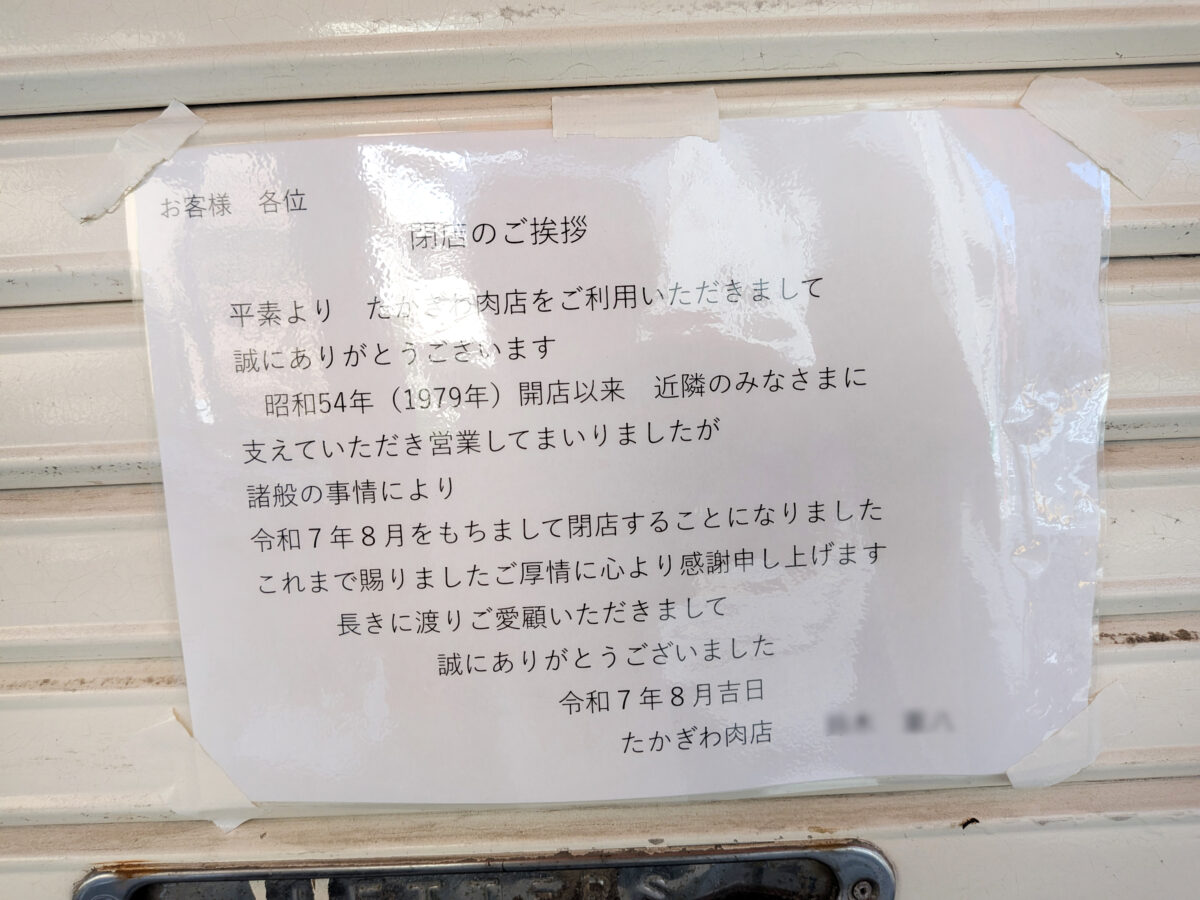 お客様　各位
閉店のご挨拶
平素より　たかぎわ肉店をご利用いただきまして
誠にありがとうございます
昭和54年（1979年）開店以来　近隣のみなさまに
支えていただき営業してまいりましたが
諸般の事情により
令和７年８月をもちまして閉店することになりました
これまで賜りましたご厚情に心より感謝申し上げます
長きに渡りご愛顧いただきまして
誠にありがとうございました
令和７年８月吉日
たかぎわ肉店
LETTERS